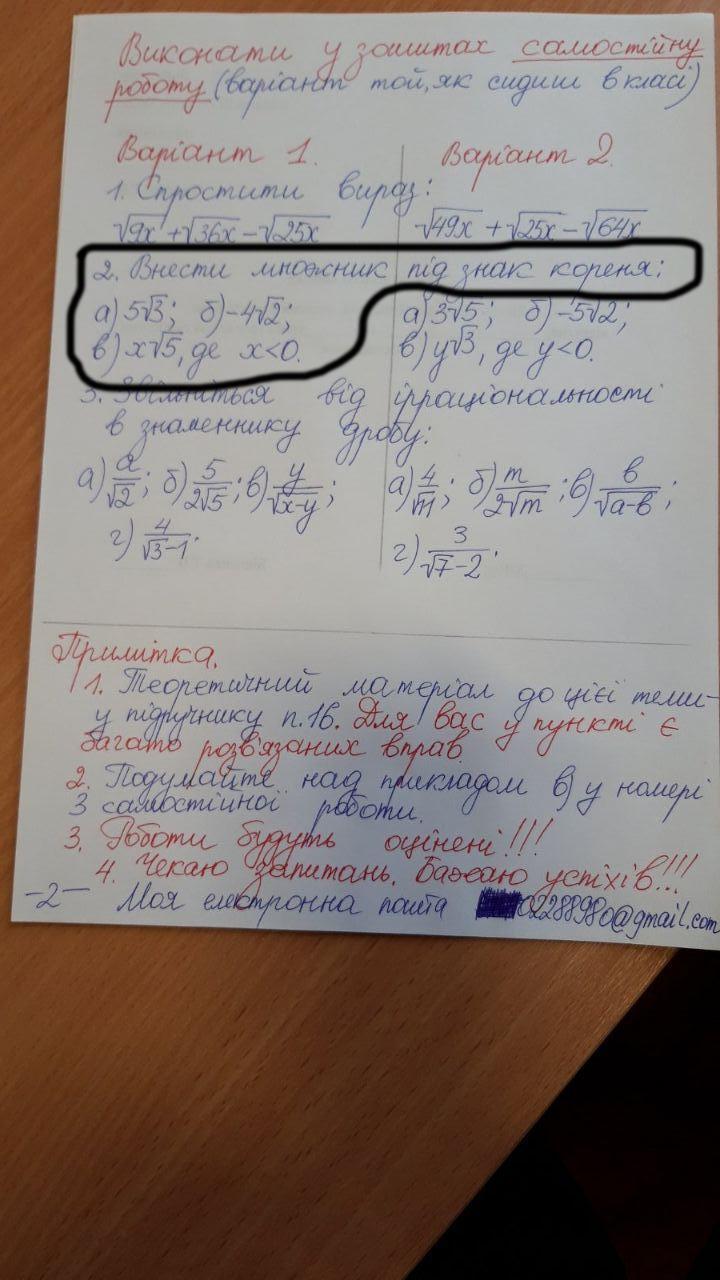 Виконати у зошитах самостійну
роботу (варіант той, як сидиш в класі)
Варіант 1.
Варіант 2.
1. Спростити вираз:
√9x + √36x - √25x
√49x + √25x - √64x
2. Внести множник під знак кореня:
а) 5√3; б) -4√2;
в) x√5, де x<0.
а) 3√5; б) -5√2;
в) y√3, де y<0.
3. Звільніться від ірраціональності
в знаменнику дробу:
а) a/√2; б) 5/2√5; в) y/√x-y;
г) 4/√3-1.
а) 4/√11; б) m/2√m; в) в/√a-в;
г) 3/√7-2.
Примітка.
1. Теоретичний матеріал до цієї теми-
у підручнику п.16. Для вас у пункті є
багато розв'язаних вправ.
2. Подумайте над прикладом в) у номері
3 самостійної роботи.
3. Роботи будуть оцінені!!!
4. Чекаю запитань. Бажаю успіхів!!!
-2- Моя електронна пошта 02288980@gmail.com